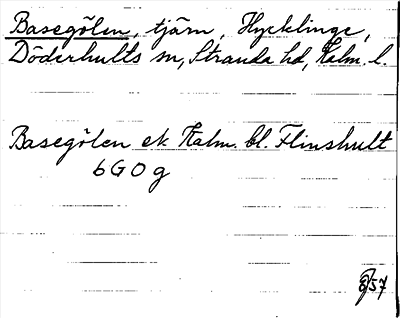 Basegölen, tjärn, Hycklinge,
Döderhults sn, Stranda hd, Kalm. l.
Basegölen ek Kalm. bl. Flinshult
6G0g
57